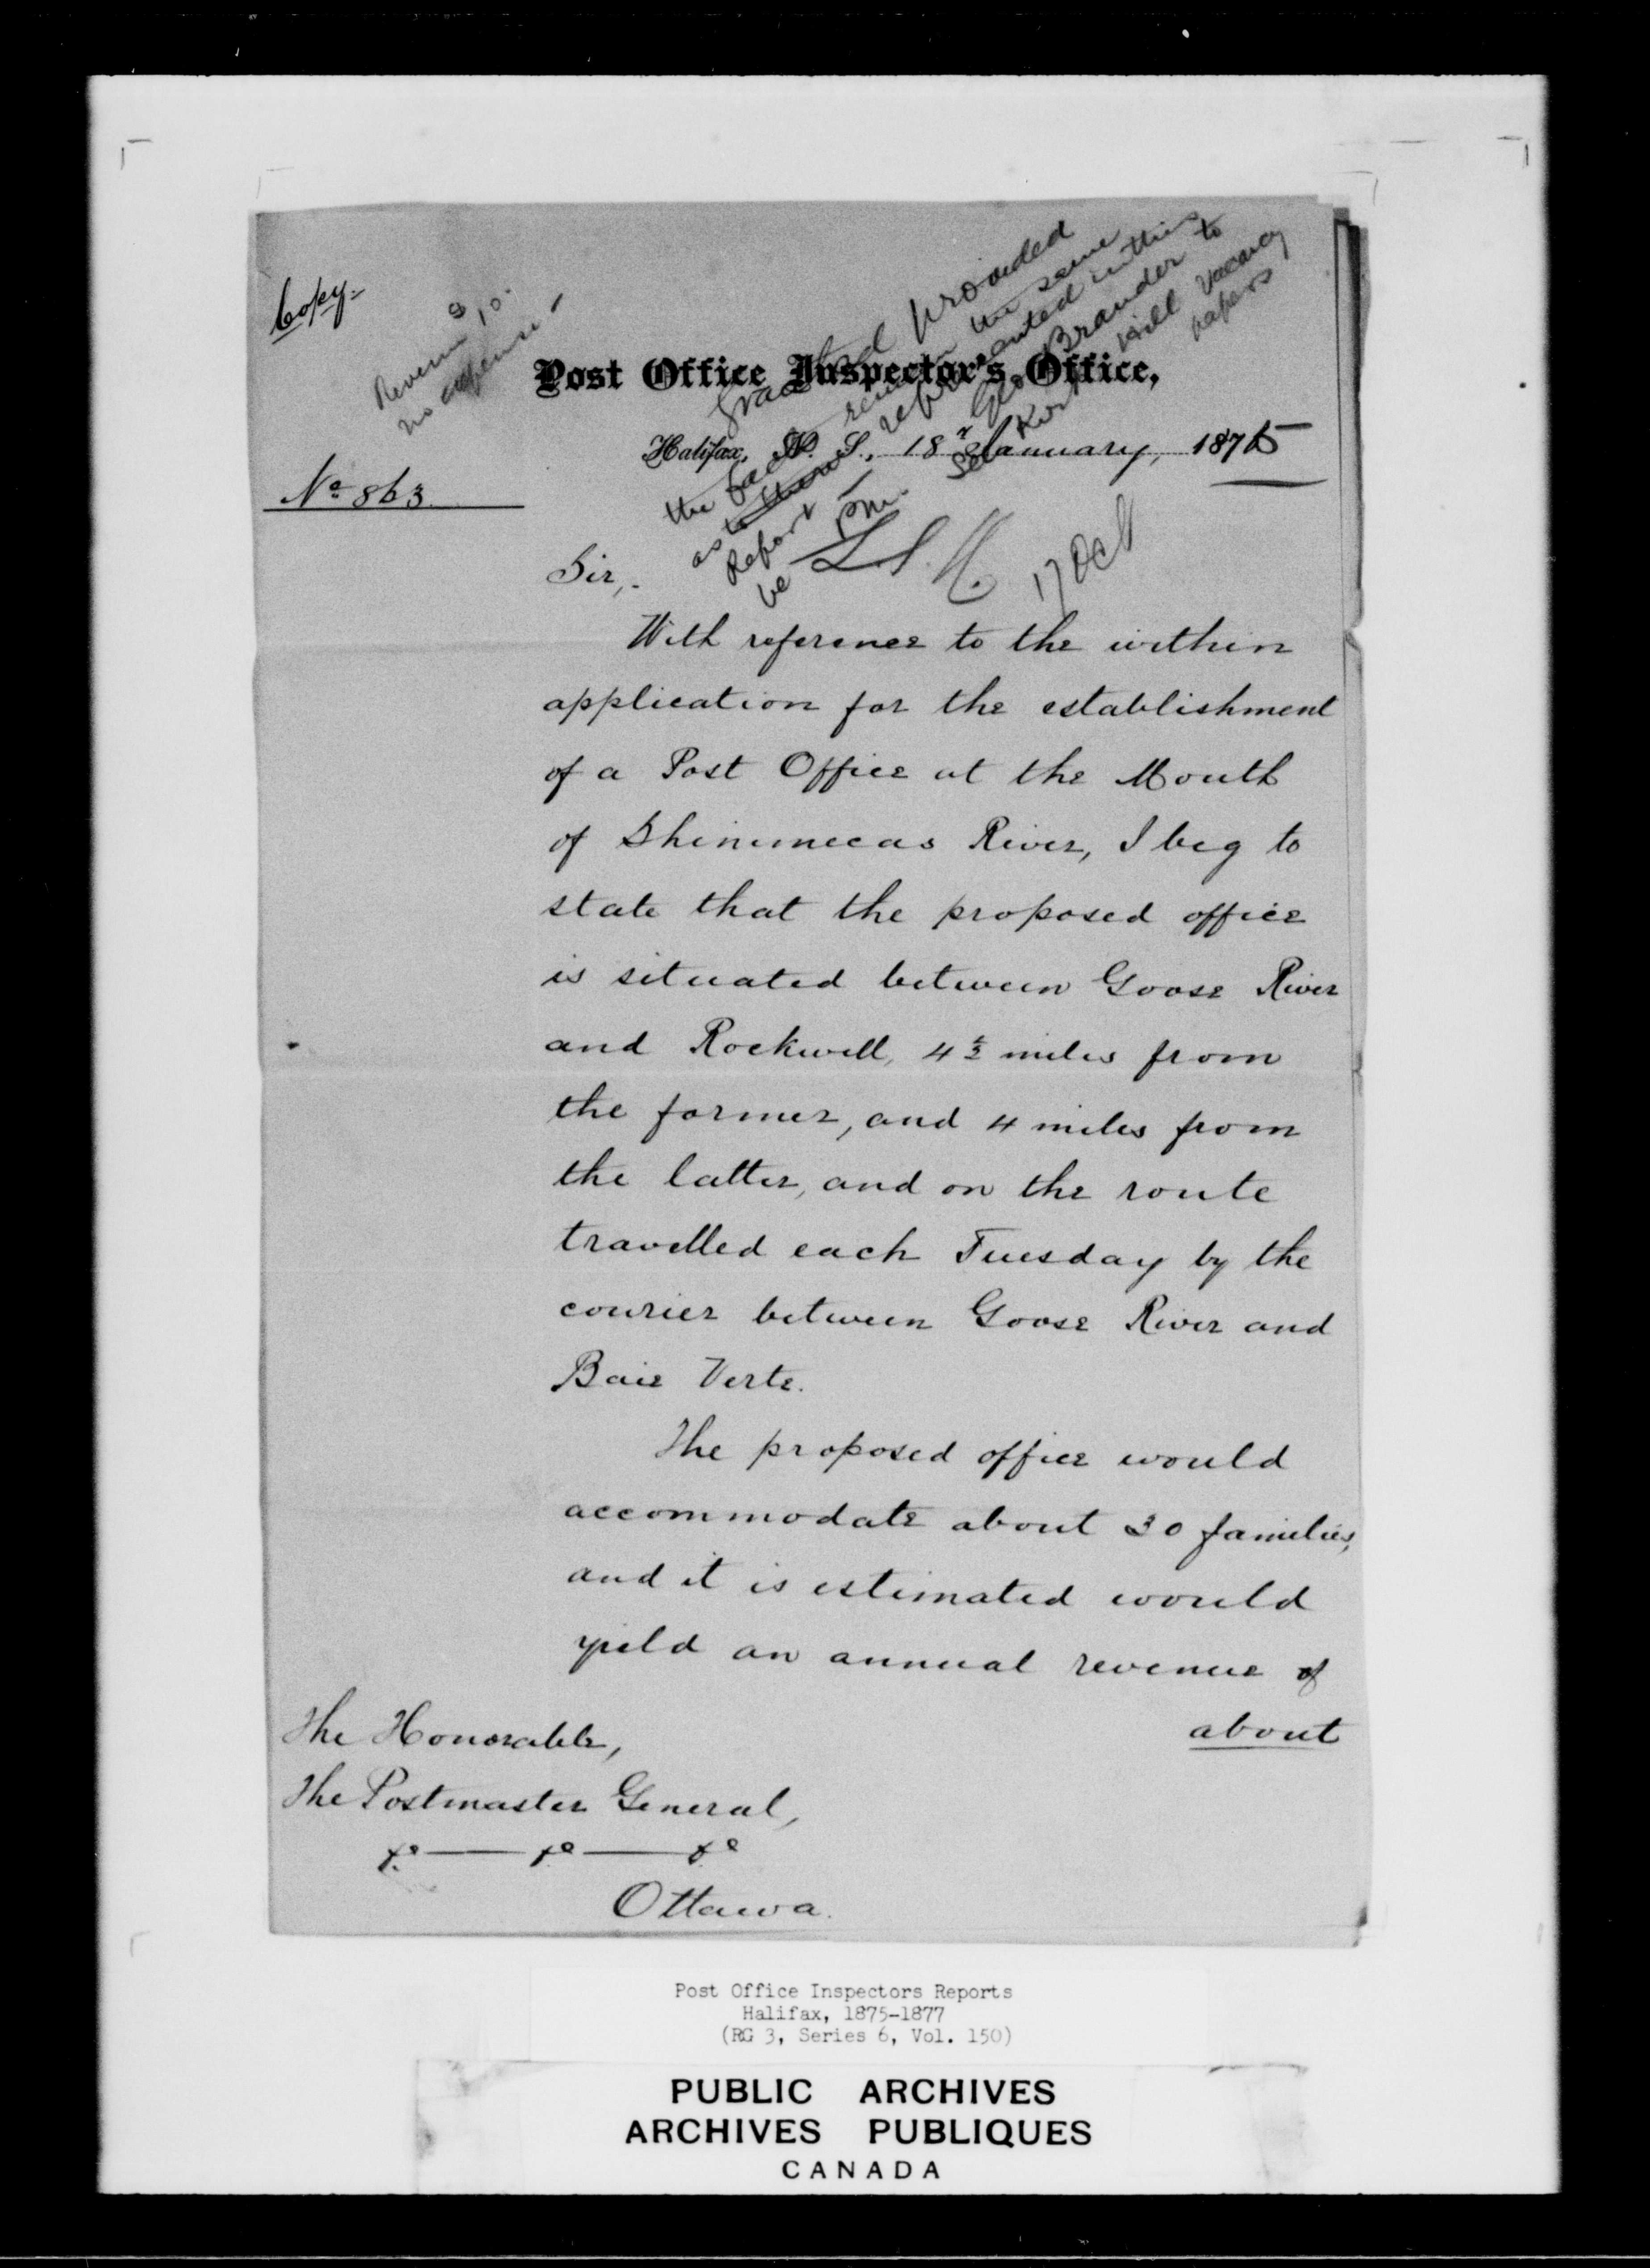 Copy.
Revenue $10.
no expense.
Granted provided
the facts remain the same
as to them represented in this
Report
Geo Brander to
be P.M. See Kirk Hill vacancy
papers
L S H. 17 Oct
Post Office Inspector's Office,
Halifax, N. S., 18th January, 1875
No 863
Sir,
With reference to the within
application for the establishment
of a Post Office at the Mouth
of Shinimecas River, I beg to
state that the proposed office
is situated between Goose River
and Rockwell, 4½ miles from
the former, and 4 miles from
the latter, and on the route
travelled each Tuesday by the
courier between Goose River and
Baie Verte.
The proposed office would
accommodate about 30 families,
and it is estimated would
yield an annual revenue of
about
The Honorable,
The Postmaster General,
&c — &c — &c
Ottawa.
Post Office Inspectors Reports
Halifax, 1875-1877
(RG 3, Series 6, Vol. 150)
PUBLIC ARCHIVES
ARCHIVES PUBLIQUES
CANADA